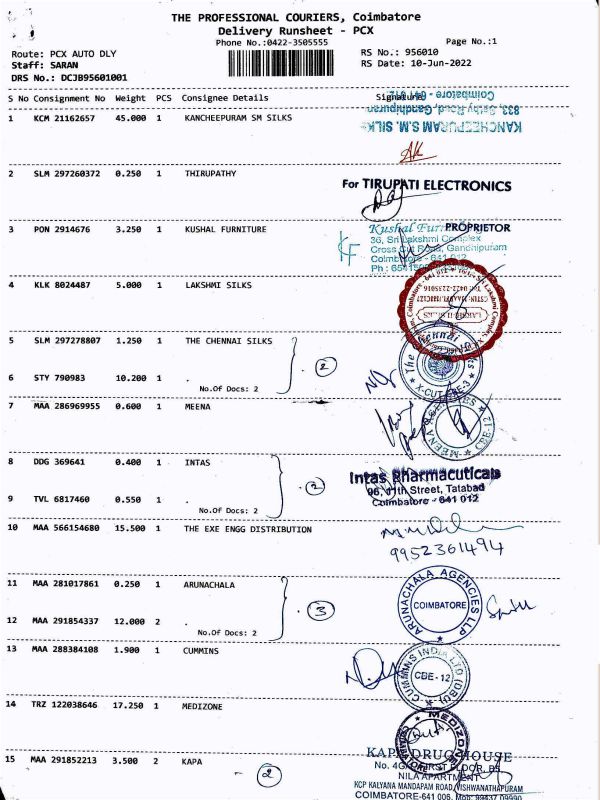 THE PROFESSIONAL COURIERS, Coimbatore
Delivery Runsheet - PCX
Phone No.:0422-3505555
Page No.:1
Route: PCX AUTO DLY
RS No.: 956010
Staff: SARAN
RS Date: 10-Jun-2022
DRS No.: DCJB95601001
S No Consignment No Weight PCS Consignee Details Signature
Coimbatore - 641 012
833, Cross Cut Road, Gandhipuram
KANCHEEPURAM S.M. SILKS
1 KCM 21162657 45.000 1 KANCHEEPURAM SM SILKS
2 SLM 297260372 0.250 1 THIRUPATHY
For TIRUPATI ELECTRONICS
PROPRIETOR
3 PON 2914676 3.250 1 KUSHAL FURNITURE
Kushal
36, Sri Lakshmi Complex
Cross Cut Road, Gandhipuram
Coimbatore - 641 012
4 KLK 8024487 5.000 1 LAKSHMI SILKS
5 SLM 297278807 1.250 1 THE CHENNAI SILKS
2
6 STY 790983 10.200 1 .
No.Of Docs: 2
The Chennai
X-CUT CBE-3
7 MAA 286969955 0.600 1 MEENA
MEENA AGENCIES
CBE-12
8 DDG 369641 0.400 1 INTAS
2
9 TVL 6817460 0.550 1 .
No.Of Docs: 2
Intas Pharmacuticals
96, 11th Street, Tatabad
Coimbatore - 641 012
10 MAA 566154680 15.500 1 THE EXE ENGG DISTRIBUTION
9952361494
11 MAA 281017861 0.250 1 ARUNACHALA
3
12 MAA 291854337 12.000 2 .
No.Of Docs: 2
ARUNACHALA AGENCIES LLP
COIMBATORE
13 MAA 288384108 1.900 1 CUMMINS
CUMMINS INDIA LTD (DBU)
CBE-12
14 TRZ 122038646 17.250 1 MEDIZONE
MEDIZONE
15 MAA 291852213 3.500 2 KAPA
2
KAPA DRUG HOUSE
NILA APARTMENT
KCP KALYANA MANDAPAM ROAD, VISHWANATHAPURAM
COIMBATORE-641 006.